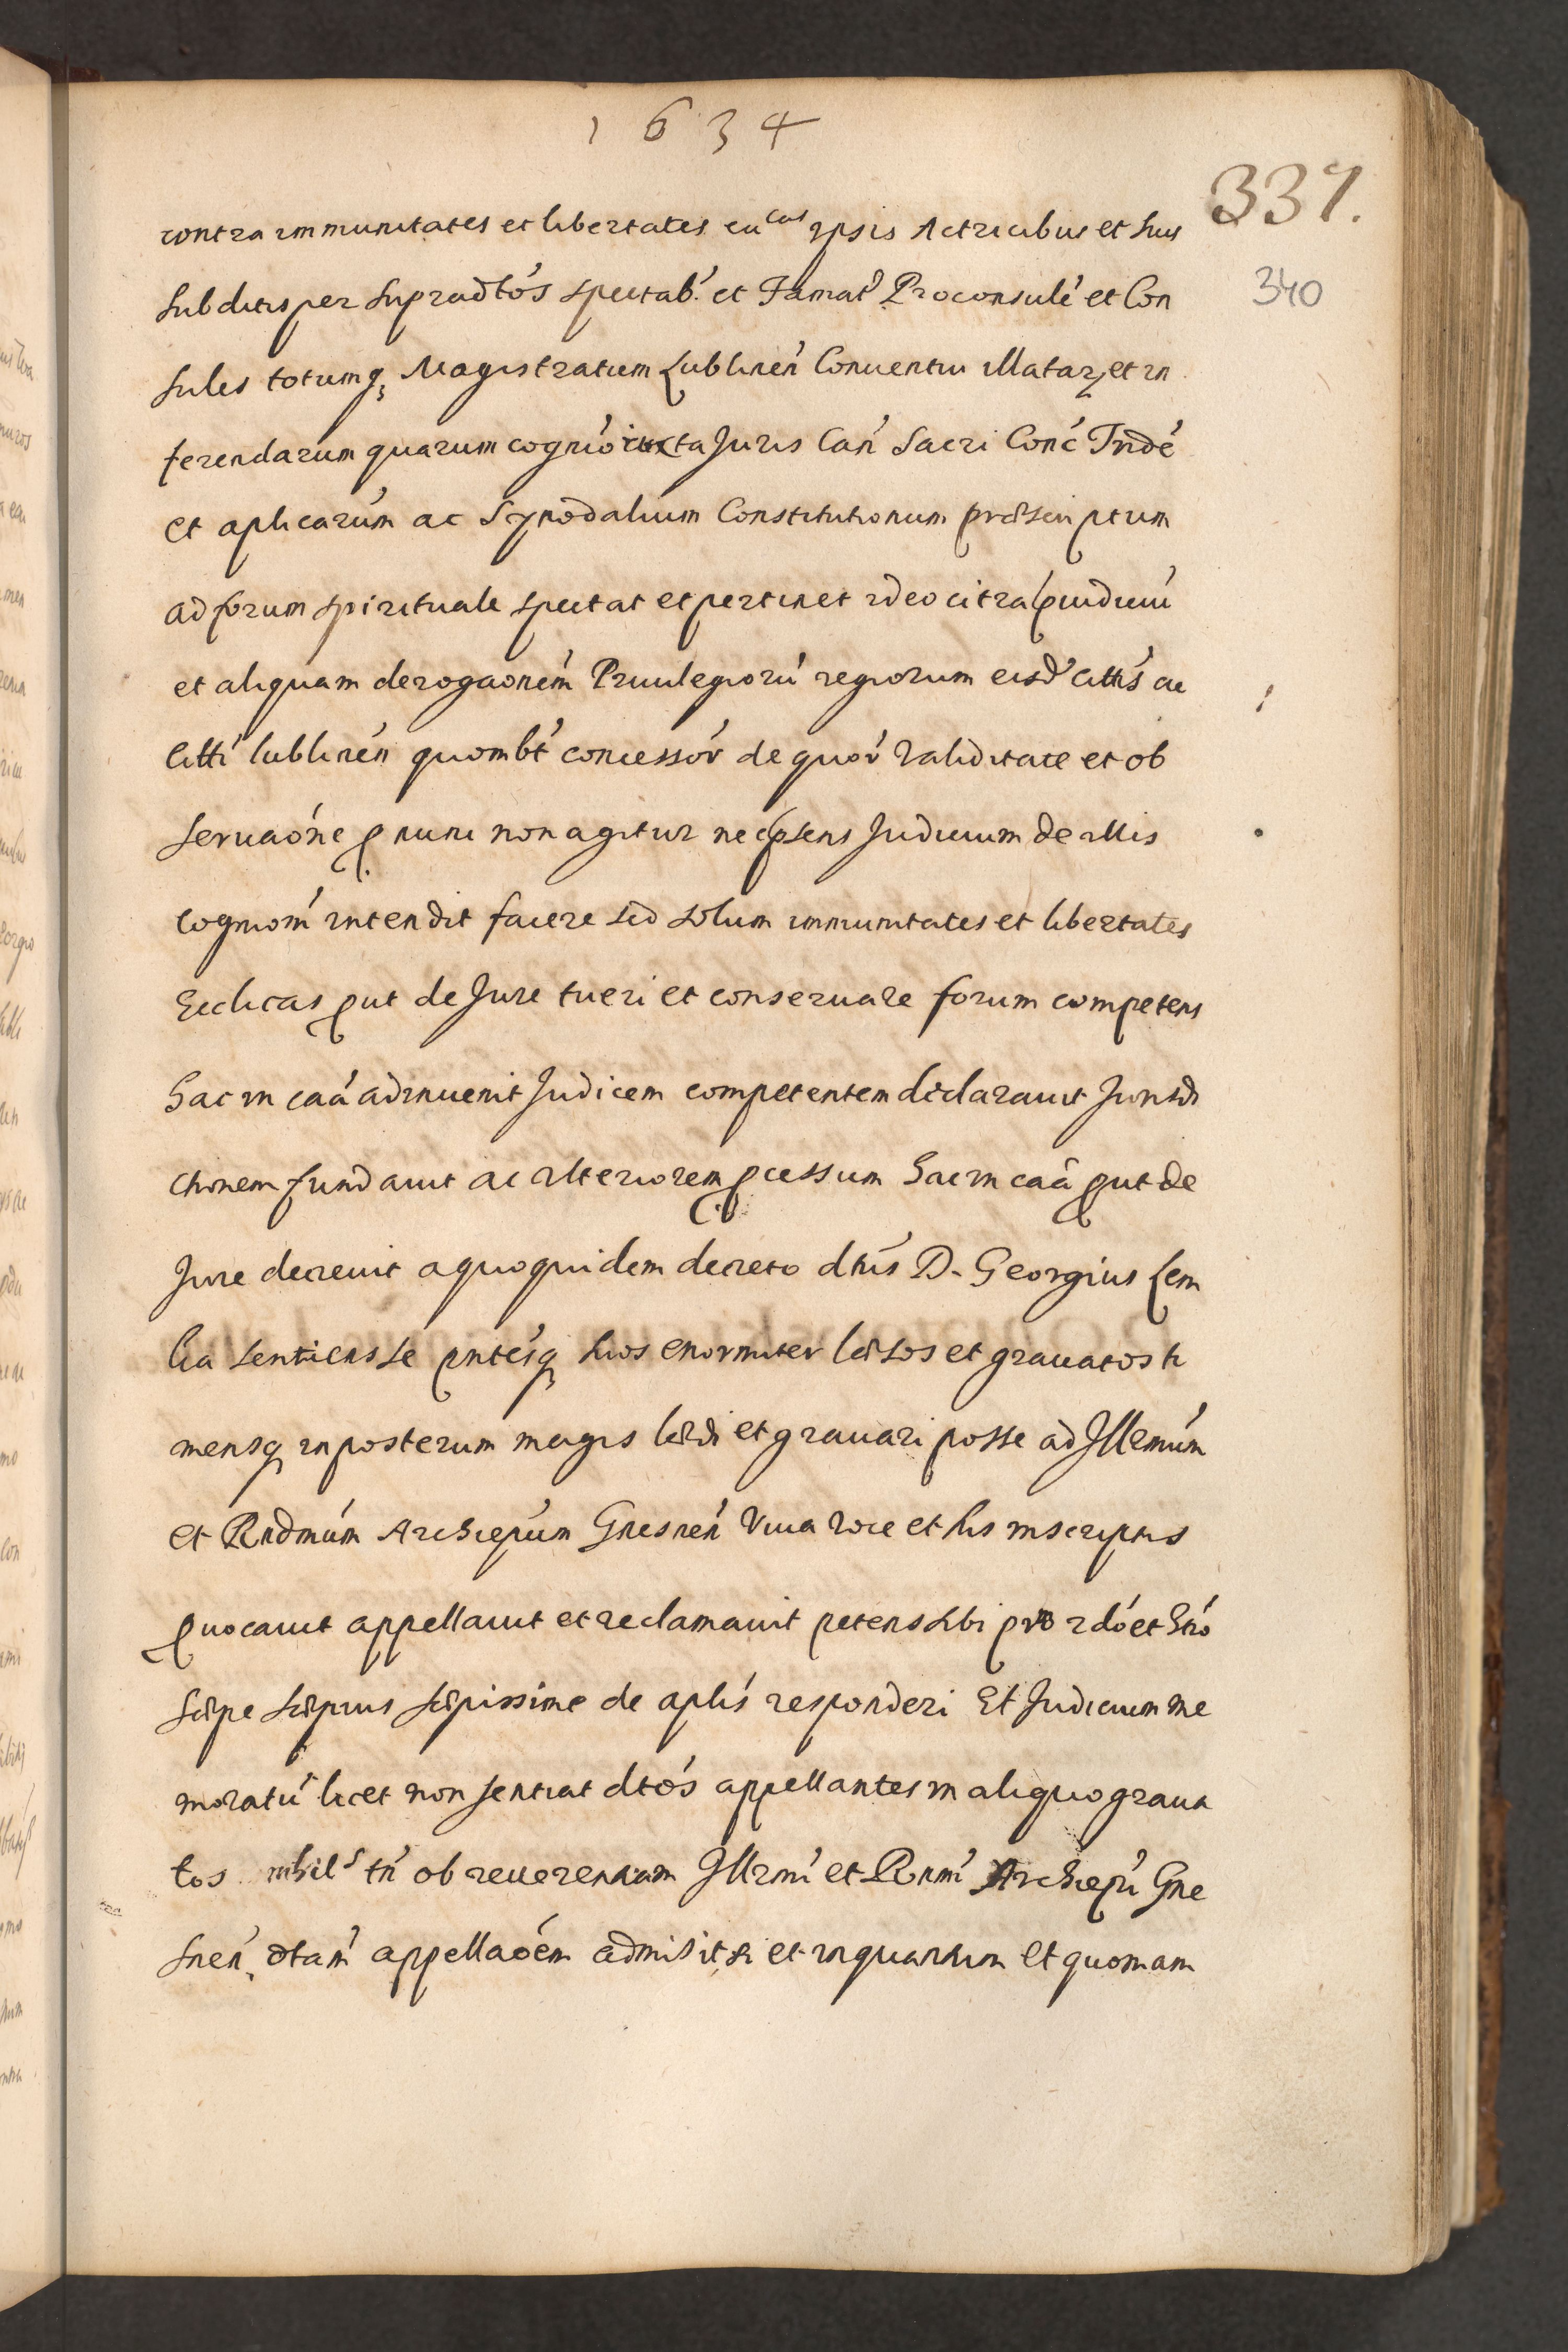 1634
337.
340
contra immunitates et libertates eccas ipsis Actricibus et suis
subditis per supradtos spectab. et Famat Proconsule et Con
sules totumq Magistratum Lublinen Conventui illatar et in
ferendarum quarum cognio iuxta Juris Can Sacri Conc Tride
et aplicarum ac Synodalium Constitutionum præscriptum
ad forum spirituale spectat et pertinet ideo citra piudiciu
et aliquam derogaonem Privilegioru regiorum eisd Cittis ac
Citti Lublinen quombt concessor de quor validitate et ob
servaone p nunc non agitur nec psens Judicium de illis
cogniom intendit facere sed solum immunitates et libertates
Ecclicas put de Jure tueri et conservare forum competens
hac in caa adinvenit Judicem competentem declaravit Jurisdi
ctionem fundavit ac ulteriorem pcessum hac in caa put de
Jure decrevit a quo quidem decreto dtus D. Georgius Lem
ca sentiens se pntesq suos enormiter læsos et gravatos ti
mensq in posterum magis lædi et gravari posse ad Illrmum
et Rndmum Archiepum Gnesnen viva voce et his in scriptis
pvocavit appellavit et reclamavit petens sibi pro 2do et 3tio
sæpe sæpius sæpissime de aplis responderi Et Judicium me
moratu licet non sentiat dtos appellantes in aliquo grava
tos nihils tn ob reverentiam Illrmi et Rnmi Archiepi Gne
snen dtam appellaoem admisit si et in quantum et quoniam